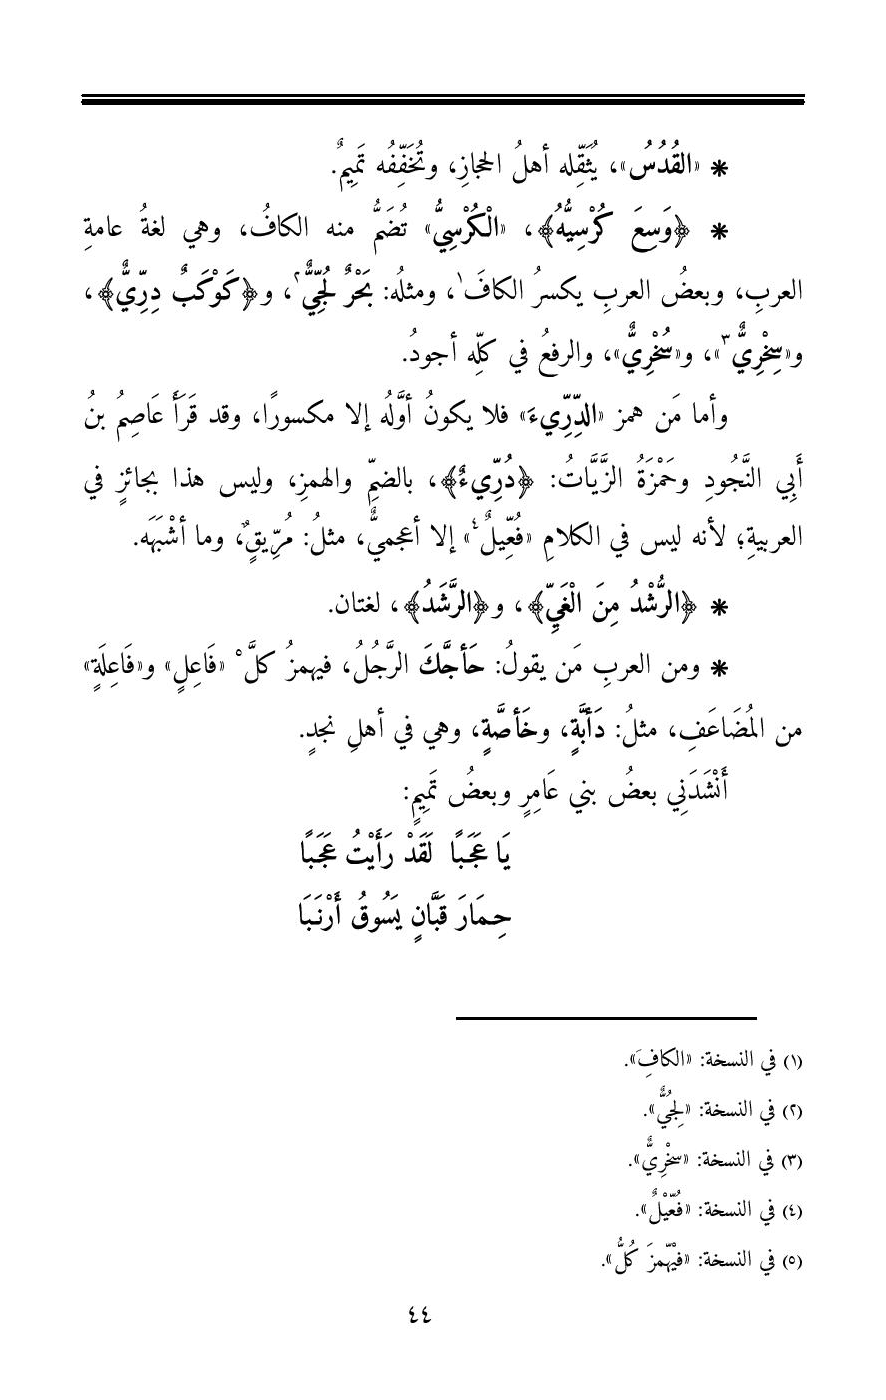 * «القُدُسُ»، يُثَقِّله أهلُ الحجازِ، وتُخَفِّفُه تَمِيمٌ.
* ﴿وَسِعَ كُرْسِيُّهُ﴾، «الْكُرْسِيُّ» تُضَمُّ منه الكافُ، وهي لغةُ عامةِ
العربِ، وبعضُ العربِ يكسرُ الكافَ١، ومثلُه: بَحْرٌ لُجِّيٌّ٢، و﴿كَوْكَبٌ دِرِّيٌّ﴾،
و«سِخْرِيٌّ٣»، و«سُخْرِيٌّ»، والرفعُ في كلِّه أجودُ.
وأما مَن همز «الدِّرِّيءَ» فلا يكونُ أوَّلُه إلا مكسورًا، وقد قَرَأَ عَاصِمُ بنُ
أَبِي النَّجُودِ وحَمْزَةُ الزَّيَّاتُ: ﴿دُرِّيءٌ﴾، بالضمِّ والهمزِ، وليس هذا بجائزٍ في
العربيةِ؛ لأنه ليس في الكلامِ «فُعِّيلٌ٤» إلا أعجميٌّ، مثلُ: مُرِّيقٍ، وما أشْبَهَه.
* ﴿الرُّشْدُ مِنَ الْغَيِّ﴾، و﴿الرَّشَدُ﴾، لغتان.
* ومن العربِ مَن يقولُ: حَأجَّكَ الرَّجُلُ، فيهمزُ كلَّ٥ «فَاعِلٍ» و«فَاعِلَةٍ»
من المُضَاعَفِ، مثلُ: دَأبَّةٍ، وخَأصَّةٍ، وهي في أهلِ نجدٍ.
أَنْشَدَنِي بعضُ بني عَامِرٍ وبعضُ تَمِيمٍ:
يَا عَجَبًا لَقَدْ رَأَيْتُ عَجَبًا
حِمَارَ قَبَّانٍ يَسُوقُ أَرْنَبَا
(١) في النسخة: «الكافِ».
(٢) في النسخة: «لِجُيٌّ».
(٣) في النسخة: «سخْرِيٌّ».
(٤) في النسخة: «فُعِّيْلٌ».
(٥) في النسخة: «فيْهّمزَ كُلُّ».
٤٤